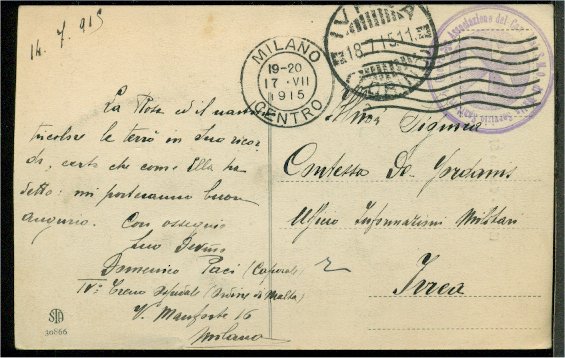 14. 7. 915
MILANO
19-20
17 · VII
1915
CENTRO
IV
18.7.15.11
Associazione del
La Rosa ed il nastro
tricolore le terrò in Suo ricor-
do, certo che come Ella ha
detto: mi porteranno buon
augurio. Con ossequio
Suo Devmo
Domenico Paci (Caporale)
IVº Treno Ospedale (Ordine di Malta)
V. Manforte 16
Milano
Illma Signora
Contessa De
Ufficio Informazioni Militari
Ivrea
STA
30866